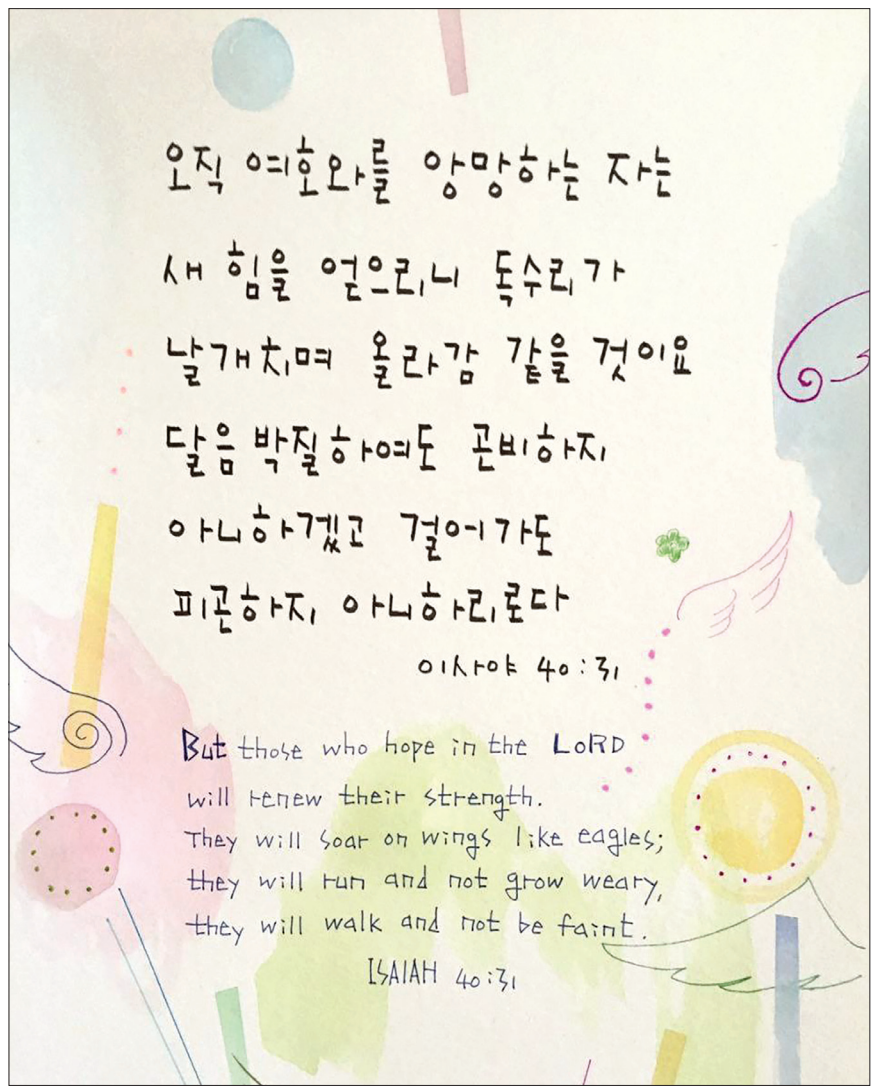 오직 여호와를 앙망하는 자는
새 힘을 얻으리니 독수리가
날개치며 올라감 같을 것이요
달음박질하여도 곤비하지
아니하겠고 걸어가도
피곤하지 아니하리로다
이사야 40:31
But those who hope in the LORD
will renew their strength.
They will soar on wings like eagles;
they will run and not grow weary,
they will walk and not be faint.
ISAIAH 40:31